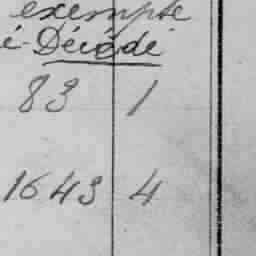 exempte
é-Décédé
83 1
1643 4